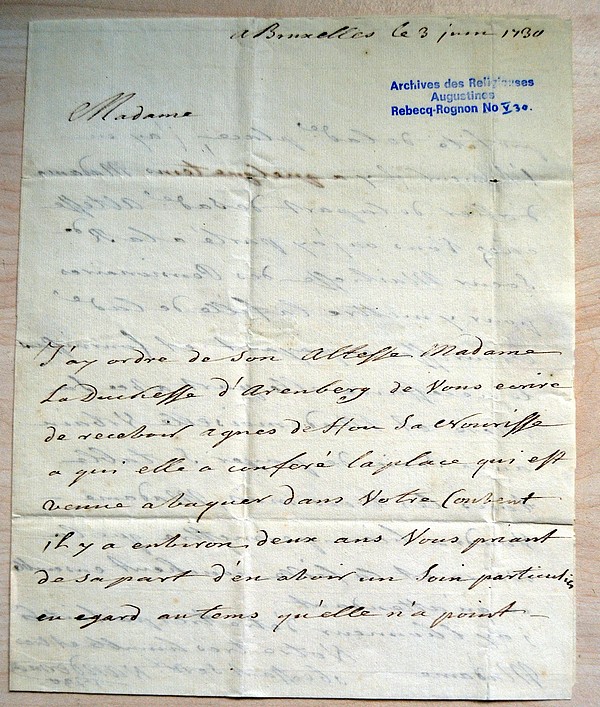 a Bruxelles le 3 juin 1730
Archives des Religieuses
Augustines
Rebecq-Rognon No V 30.
Madame
J'ay ordre de Son Altesse Madame
La Duchesse d'Arenberg de Vous ecrire
de recevoir agnes de Hou Sa Nourisse
a qui elle a conferé la place qui est
venue a vaquer dans Votre Couvent
il y a environ deux ans Vous priant
de sa part d'en avoir un Soin particulier
eu egard au tems qu'elle n'a point